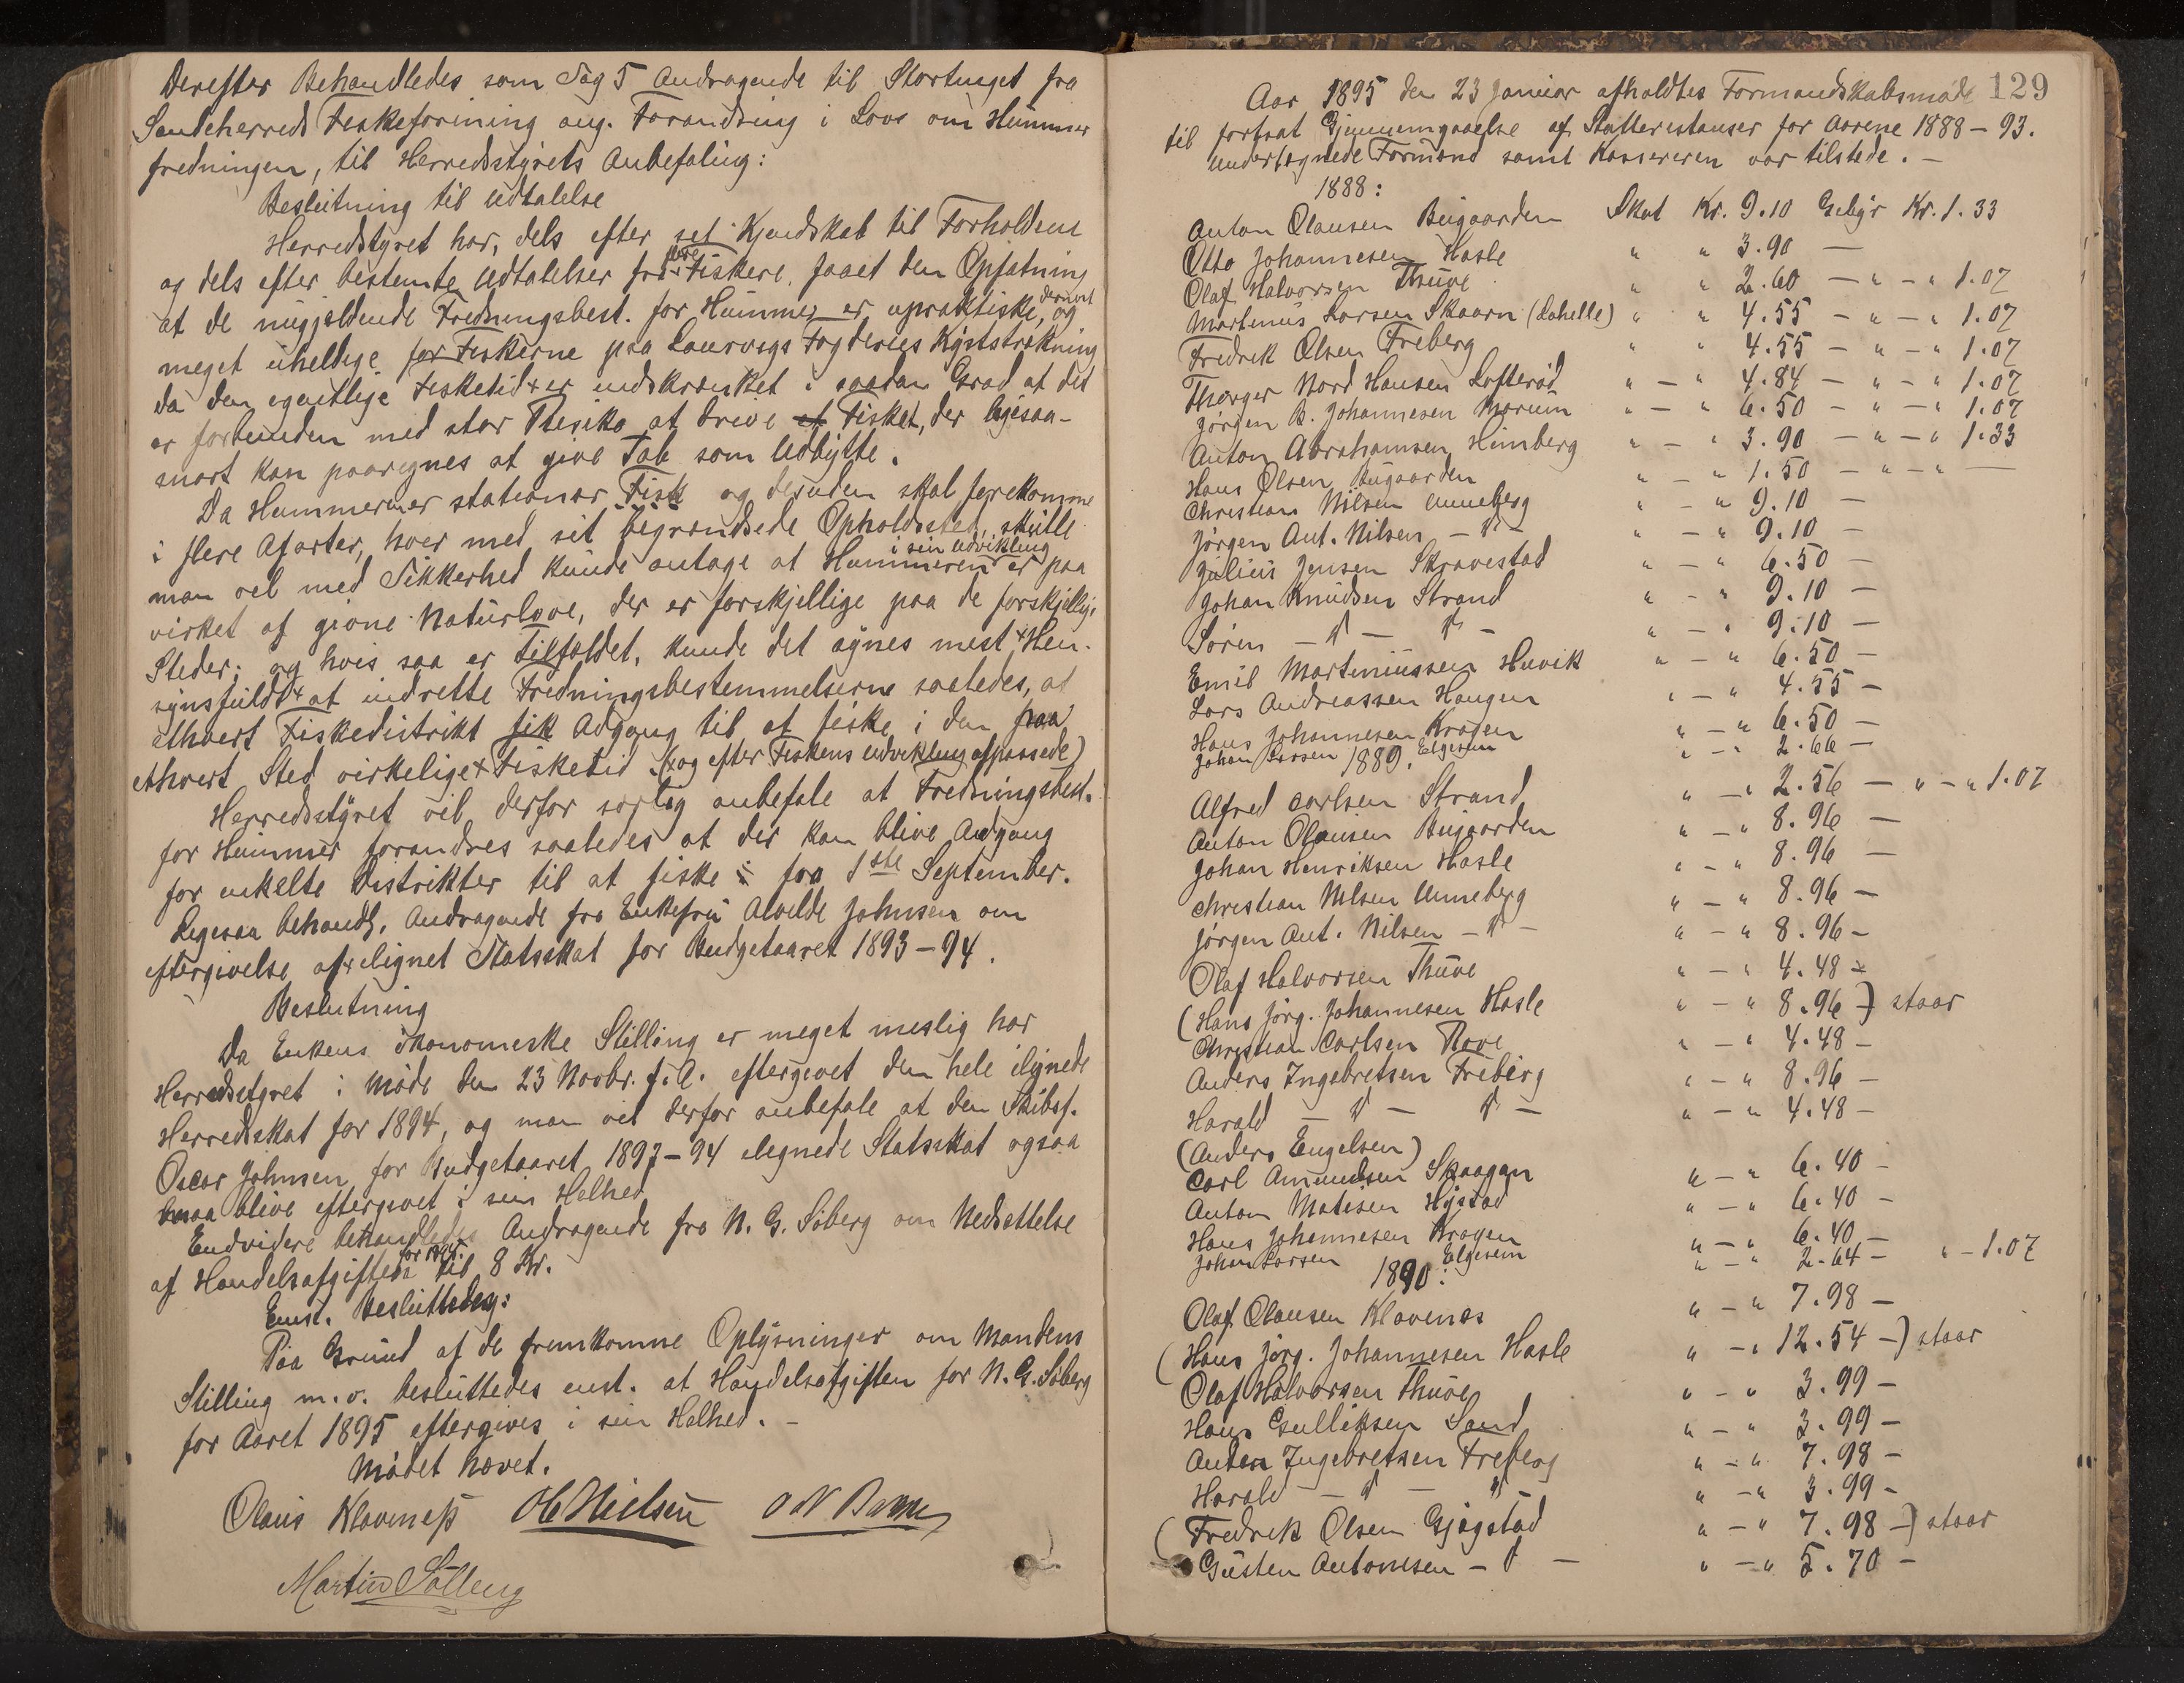 Derefter Behandledes som Sag 5 Andragende til Stortinget fra
Sandeherreds Fiskeforening ang. Forandring i Lov om Hummer
fredningen, til Herredsstyrets Anbefaling:
Beslutning til Udtalelse
Herredstyret har, dels efter set Kjendskab til Forholdene
og dels efter bestemte Udtalelser fra flere Fiskere, faaet den Opfatning
at de nugjældende Fredningsbest. for Hummer er upraktiske, og derved
meget uheldige for Fiskerne paa Laurvigs Fogderies Kyststrækning
da den egentlige Fisketid + er indskrænket i saadan Grad at det
er forbunden med stor Risiko at drive af Fisket, der ligesaa-
snart kan paaregnes at give Tab som Udbytte.
Da Hummeren er stationær Fisk og desuden skal forekomme
i flere Afarter, hver med sit begrændsede Opholdssted, skulle
man vel med Sikkerhed kunde antage at Hummeren i sin Udvikling er paa
virket af givne Naturlove, der er forskjellige paa de forskjellige
Steder; og hvis saa er Tilfældet, kunde det synes mest + Hen-
synsfuldt + at indrette Fredningsbestemmelserne saaledes, at
ethvert Fiskedistrikt fik Adgang til at fiske i den paa
ethvert Sted virkelige + Fisketid. (+ og efter Fiskens Udvikling afpassede)
Herredsstyret vil derfor særlig anbefale at Fredningsbest.
for Hummer forandres saaledes at der kan blive Adgang
for enkelte Distrikter til at fiske i fra 1ste September.
Ligesaa behandl. Andragende fra Enkefru Alvilde Johnsen om
eftergivelse af ilignet Statsskat for Budgetaaret 1893-94.
Beslutning
Da Enkens økonomiske Stilling er meget mislig har
Herredsstyret i Møde den 23 Novbr. f.A. eftergivet den hele ilignede
Herredsskat for 1894, og man vil derfor anbefale at den Skibsf.
Oscar Johnsen for Budgetaaret 1893-94 ilignede Statsskat ogsaa
maa blive eftergivet i sin Helhed
Endvidere behandledes Andragende fra N. G. Søberg om Nedsættelse
af Handelsafgiften for 1895 til 8 Kr.
Enst. Besluttedes:
Paa Grund af de fremkomne Oplysninger om Mandens
Stilling m.v. besluttedes enst. at Handelsafgiften for N. G. Søberg
for Aaret 1895 eftergives i sin Helhed. -
Mødet hævet.
Olaus Klaveness Ol Nielsen
Martin Sølling
129
Aar 1895 den 23 Januar afholdtes Formandskabsmøde
til fortsat Gjennemgaaelse af Skatterestanser for Aarene 1888-93.
undertegnede Formænd samt Kassereren var tilstede. -
1888:
Anton Olausen Bugaarden Skat Kr. 9.10 Gebyr Kr. 1.33
Otto Johannesen Hasle " " 3.90 —
Olaf Halvorsen Thuve " " 2.60 - " - " 1.07
Martinus Larsen Skaarn (Lahelle) " " 4.55 - " - " 1.07
Fredrik Olsen Freberg " " 4.55 - " - " 1.07
Thorger Nord Hansen Lofterød " - " 4.84 - " - " 1.07
Jørgen B. Johannesen Morum " - " 6.50 - " - " 1.07
Anton Abrahamsen Himberg " - " 3.90 - " - " 1.33
Hans Olsen Bugaarden " - " 1.50 - " - " —
Christian Nilsen Unneberg " - " 9.10 —
Jørgen Ant. Nilsen - " - " - " 9.10 —
Julius Jensen Skravestad " - " 6.50 —
Johan Knudsen Strand " - " 9.10 —
Søren - " - " - " - " 9.10 —
Emil Martiniussen Huvik " - " 6.50 —
Lars Andreassen Haugen " - " 4.55 —
Hans Johannesen Kragen " - " 6.50 —
Johan Larsen Elgesem " - " 2.66 —
1889.
Alfred Carlsen Strand " - " 2.56 - " - " 1.07
Anton Olausen Bugaarden " - " 8.96 —
Johan Henriksen Hasle " - " 8.96 —
Christian Nilsen Unneberg " - " 8.96 —
Jørgen Ant. Nilsen - " - " - " 8.96 -
Olaf Halvorsen Thuve " - " 4.48 -
(Hans Jørg. Johannesen Hasle " - " 8.96 -) staar
Christian Carlsen Rove " - " 4.48 -
Anders Ingebretsen Freberg " - " 8.96 -
Harald - " - " - " - " 4.48 -
(Anders Engelsen)
Carl Amundsen Skaagan " - " 6.40 -
Anton Matisen Hystad " - " 6.40 -
Hans Johannesen Kragen " - " 6.40 -
Johan Larsen Elgesem " - " 2.64 - " - 1.07
1890:
Olaf Olausen Klavenes " - " 7.98 -
(Hans Jørg. Johannesen Hasle " - " 12.54 -) staar
Olaf Halvorsen Thuve " - " 3.99 -
Hans Gulliksen Sand " - " 3.99 -
Anders Ingebretsen Freberg " - " 7.98 -
Harald - " - " - " - " 3.99 -
(Fredrik Olsen Gjøgstad " - " 7.98 -) staar
Gusten Antonisen - " - " - " 5.70 -